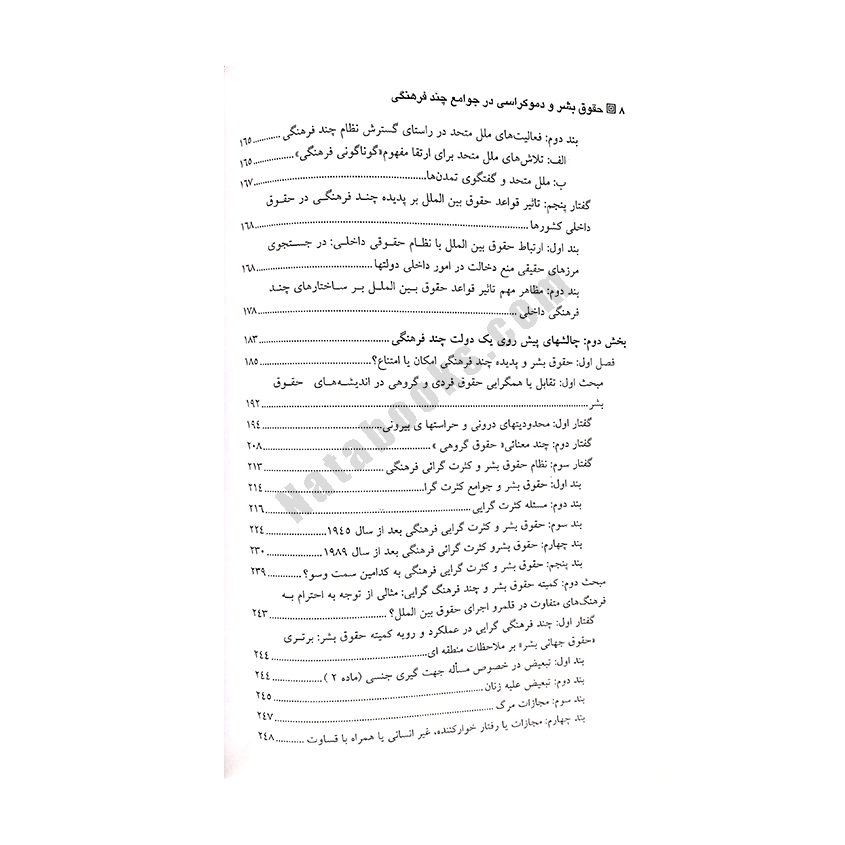 ۸ حقوق بشر و دموکراسی در جوامع چند فرهنگی
بند دوم: فعالیت‌های ملل متحد در راستای گسترش نظام چند فرهنگی ........... ۱۶۵
الف: تلاش‌های ملل متحد برای ارتقا مفهوم«گوناگونی فرهنگی»............... ۱۶۵
ب: ملل متحد و گفتگوی تمدن‌ها............... ۱۶۷
گفتار پنجم: تاثیر قواعد حقوق بین الملل بر پدیده چند فرهنگی در حقوق
داخلی کشورها............... ۱۶۸
بند اول: ارتباط حقوق بین الملل با نظام حقوقی داخلی: در جستجوی
مرزهای حقیقی منع دخالت در امور داخلی دولتها............... ۱۶۸
بند دوم: مظاهر مهم تاثیر قواعد حقوق بین الملل بر ساختارهای چند
فرهنگی داخلی............... ۱۷۸
بخش دوم: چالشهای پیش روی یک دولت چند فرهنگی............... ۱۸۳
فصل اول: حقوق بشر و پدیده چند فرهنگی امکان یا امتناع؟............... ۱۸۵
مبحث اول: تقابل یا همگرایی حقوق فردی و گروهی در اندیشه‌های حقوق
بشر............... ۱۹۲
گفتار اول: محدودیتهای درونی و حراستهای بیرونی............... ۱۹۴
گفتار دوم: چند معنائی« حقوق گروهی »............... ۲۰۸
گفتار سوم: نظام حقوق بشر و کثرت گرائی فرهنگی............... ۲۱۳
بند اول: حقوق بشر و جوامع کثرت گرا............... ۲۱۴
بند دوم: مسئله کثرت گرایی............... ۲۱۶
بند سوم: حقوق بشر و کثرت گرایی فرهنگی بعد از سال ۱۹۴۵............... ۲۲۴
بند چهارم: حقوق بشرو کثرت گرائی فرهنگی بعد از سال ۱۹۸۹............... ۲۳۰
بند پنجم: حقوق بشر و کثرت گرایی فرهنگی به کدامین سمت وسو؟............ ۲۳۹
مبحث دوم: کمیته حقوق بشر و چند فرهنگ گرایی: مثالی از توجه به احترام بـه
فرهنگ‌های متفاوت در قلمرو اجرای حقوق بین الملل؟............... ۲۴۳
گفتار اول: چند فرهنگی گرایی در عملکرد و رویه کمیته حقوق بشر: برتری
«حقوق جهانی بشر» بر ملاحظات منطقه ای............... ۲۴۴
بند اول: تبعیض در خصوص مسأله جهت گیری جنسی (ماده ۲ )............... ۲۴۴
بند دوم: تبعیض علیه زنان............... ۲۴۵
بند سوم: مجازات مرگ............... ۲۴۷
بند چهارم: مجازات یا رفتار خوارکننده، غیر انسانی یا همراه با قساوت ........... ۲۴۸
Natabooks.com